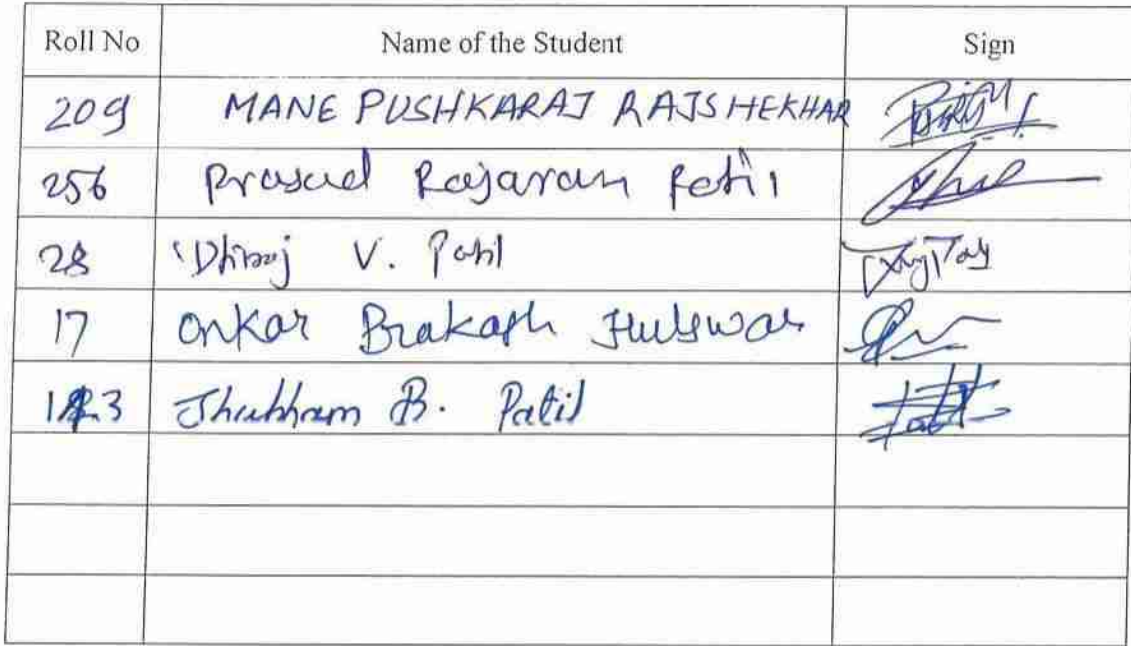 Roll No Name of the Student Sign
209 MANE PUSHKARAJ RAJSHEKHAR
256 Prasad Rajaram Patil
28 Dhiraj V. Patil
17 Onkar Prakash
Shubham B. Patil